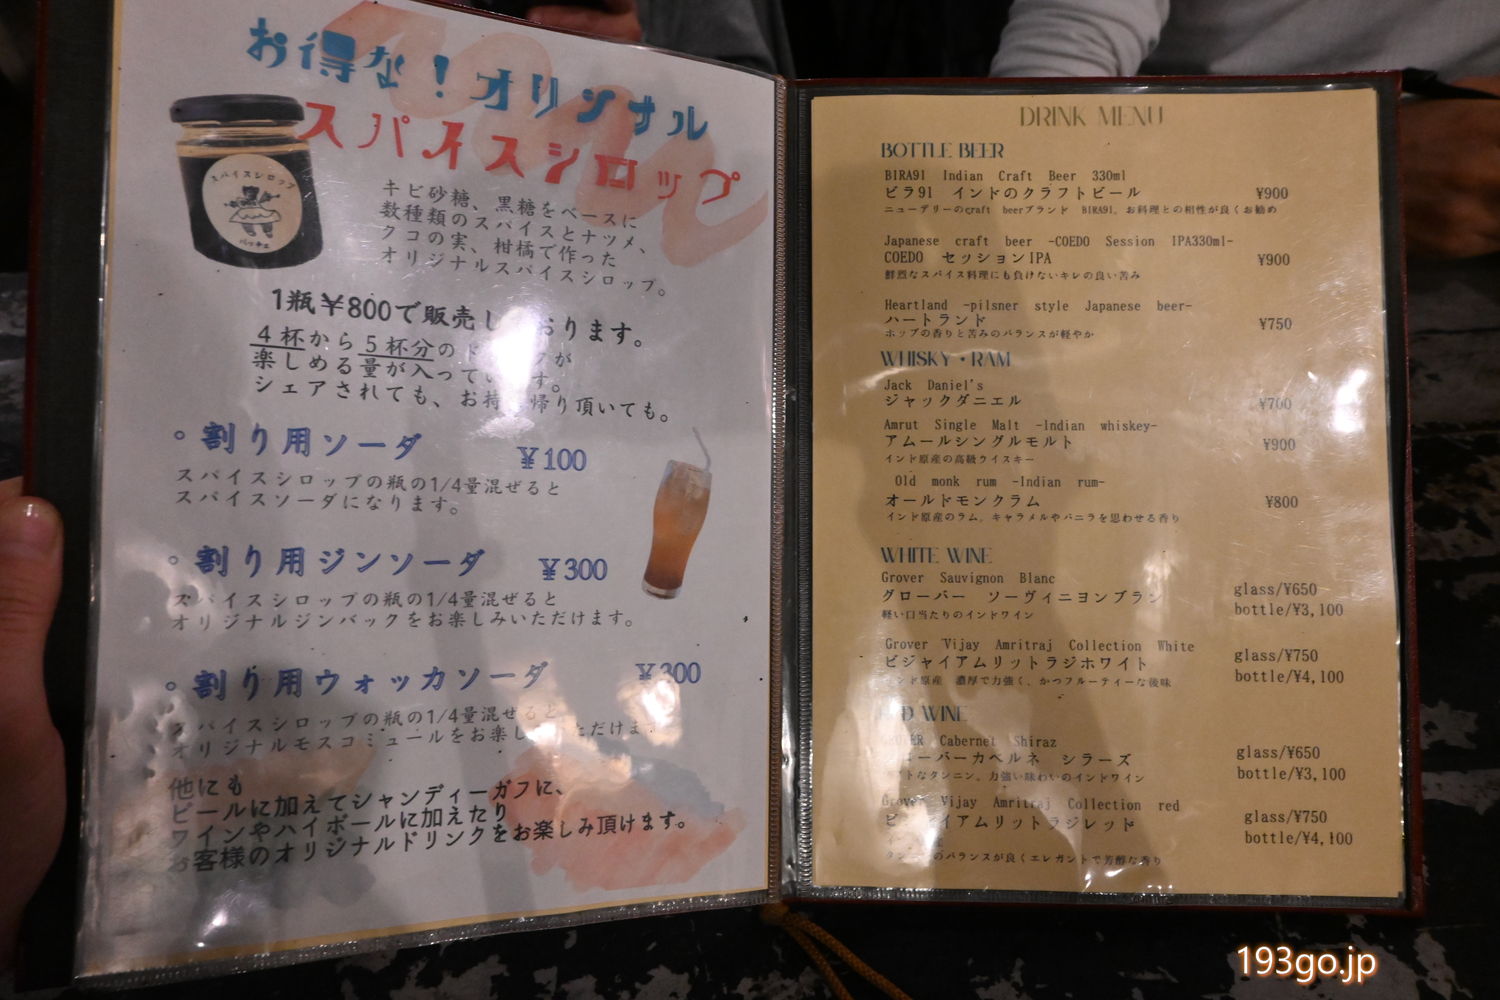 お得な！オリジナル
スパイスシロップ
スパイスシロップ
パッチェ
キビ砂糖、黒糖をベースに
数種類のスパイスとナツメ、
クコの実、柑橘で作った
オリジナルスパイスシロップ。
1瓶￥800で販売し おります。
4杯から5杯分の が
楽しめる量が入って す。
シェアされても、お持 帰り頂いても。
。割り用ソーダ ￥100
スパイスシロップの瓶の1/4量混ぜると
スパイスソーダになります。
。割り用ジンソーダ ￥300
スパイスシロップの瓶の1/4量混ぜると
オリジナルジンバックをお楽しみいただけます。
。割り用ウォッカソーダ ￥300
スパイスシロップの瓶の1/4量混ぜると
オリジナルモスコミュールをお楽し ただけます
他にも
ビールに加えてシャンディーガフに、
ワインやハイボールに加えたり
お客様のオリジナルドリンクをお楽しみ頂けます。
DRINK MENU
BOTTLE BEER
BIRA91 Indian Craft Beer 330ml
ビラ91 インドのクラフトビール ¥900
ニューデリーのcraft beerブランド BIRA91。お料理との相性が良くお勧め
Japanese craft beer -COEDO Session IPA330ml-
COEDO セッションIPA ¥900
鮮烈なスパイス料理にも負けないキレの良い苦み
Heartland -pilsner style Japanese beer-
ハートランド ¥750
ホップの香りと苦みのバランスが軽やか
WHISKY・RAM
Jack Daniel's
ジャックダニエル ¥700
Amrut Single Malt -Indian whiskey-
アムールシングルモルト ¥900
インド原産の高級ウイスキー
Old monk rum -Indian rum-
オールドモンクラム ¥800
インド原産のラム。キャラメルやバニラを思わせる香り
WHITE WINE
Grover Sauvignon Blanc
グローバー ソーヴィニヨンブラン glass/¥650
軽い口当たりのインドワイン bottle/¥3,100
Grover Vijay Amritraj Collection White
ビジャイアムリットラジホワイト glass/¥750
インド原産 濃厚で力強く、かつフルーティーな後味 bottle/¥4,100
RED WINE
GROVER Cabernet Shiraz
グローバーカベルネ シラーズ glass/¥650
なタンニン、力強い味わいのインドワイン bottle/¥3,100
Grover Vijay Amritraj Collection red
ビジャイアムリットラジレッド glass/¥750
bottle/¥4,100
タンニンのバランスが良くエレガントで芳醇な香り
193go.jp